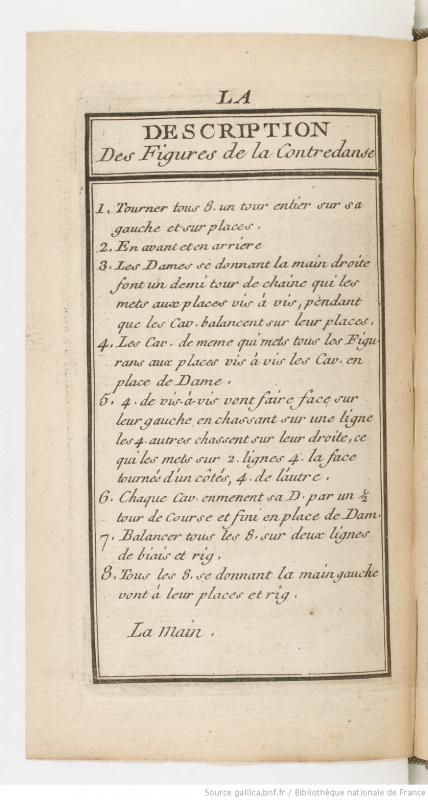 LA
DESCRIPTION
Des Figures de la Contredanse
1. Tourner tous 8. un tour entier sur sa
gauche et sur places.
2. En avant et en arriere
3. Les Dames se donnant la main droite
font un demi tour de chaine qui les
mets aux places vis á vis, pendant
que les Cav. balancent sur leur places.
4. Les Cav. de meme qui mets tous les Figu-
rans aux places vis á vis les Cav. en
place de Dame.
5. 4. de vis-á-vis vont faire face sur
leur gauche en chassant sur une ligne
les 4. autres chassent sur leur droite, ce
qui les mets sur 2. lignes 4. la face
tournés d'un côtés, 4. de l'autre.
6. Chaque Cav. enmenent sa D. par un ½
tour de Course et fini en place de Dam.
7. Balancer tous les 8. sur deux lignes
de biais et rig.
8. Tous les 8. se donnant la main gauche
vont á leur places et rig.
La main.
Source gallica.bnf.fr / Bibliothèque nationale de France